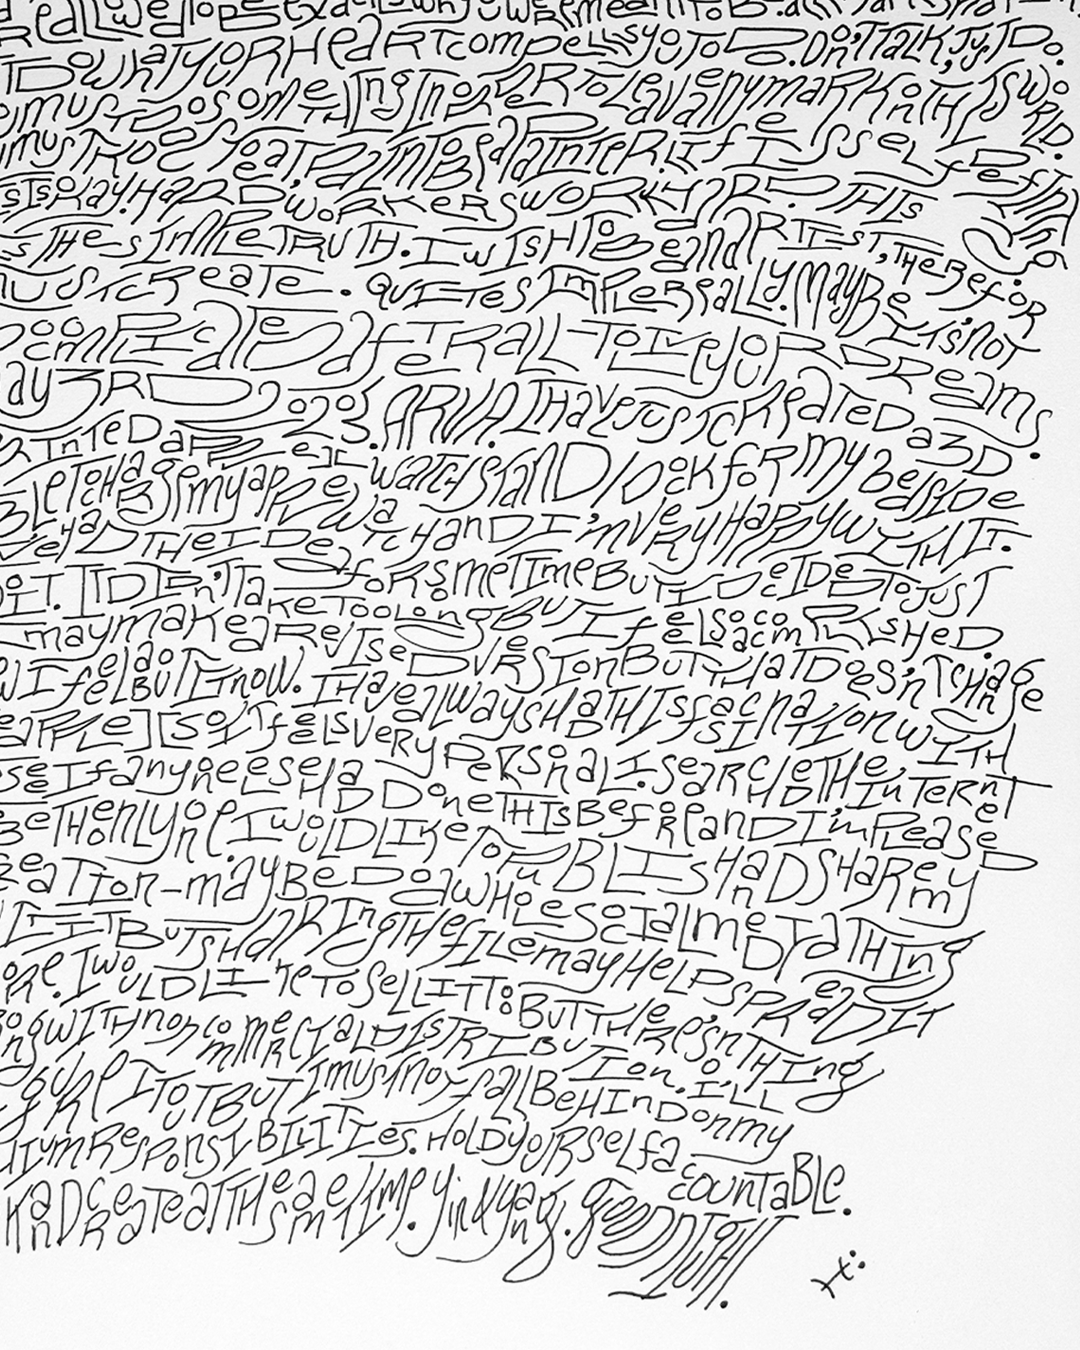 exactly who you were meant to be.
do what your heart compells you to do. Don't talk, just do.
must do something in order to leave any mark in this world.
must know to eat. Paint to be a painter. Life is self defining
Hard workers work hard. This
is the simple truth. I wish to be and artist, therefor
must create. Quite simple really. Maybe it's not
complicated after all to live your dreams
2023. ARVA. I have just created a 3D
printed apple watch stand / dock for my bedside
to charge my apple watch and I'm very happy with it.
had the idea for sometime but I decided to just
do it. It didn't take too long but I feel so accomplished.
I may make a revised version but that doesn't change
I feel about it now. I have always had this fascination with
apple] [so it feels very personal. I searched the internet
see if anyone else had done this before and I'm pleased
be the only one. I would like to publish and share my
creation - maybe do a whole social media thing
it but sharing the file may help spread it
more. I would like to sell it too but there's nothing
wrong with non commercial distribution. I'll
figure it out but I must not fall behind on my
responsibilities. Hold yourself accountable.
and create at the same time. yin & yang. good night.